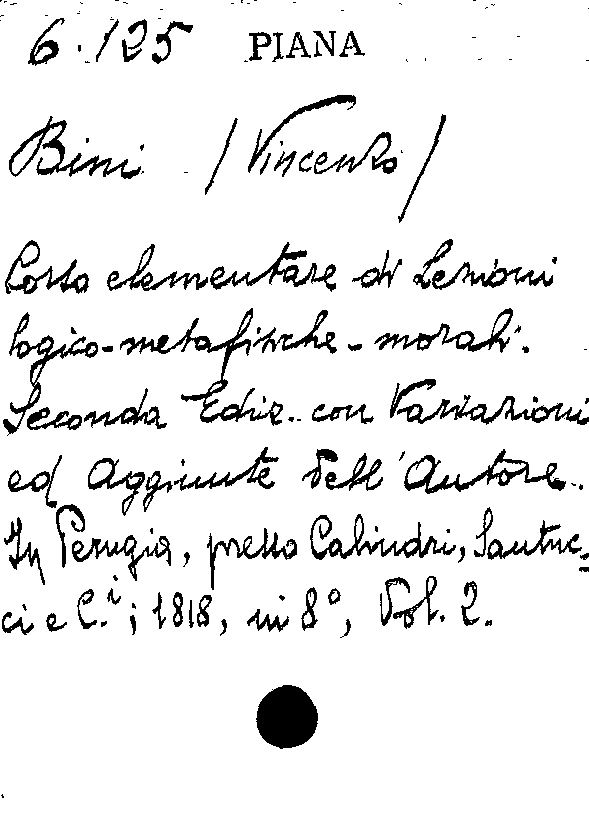 6.125 PIANA
Bini /Vincenzo/
Corso elementare di Lezioni
logico-metafisiche-morali.
Seconda Ediz. con Variazioni
ed Aggiunte dell'Autore.
In Perugia, presso Calindri, Santuc-
ci e C.i; 1818, in 8°, Vol. 2.